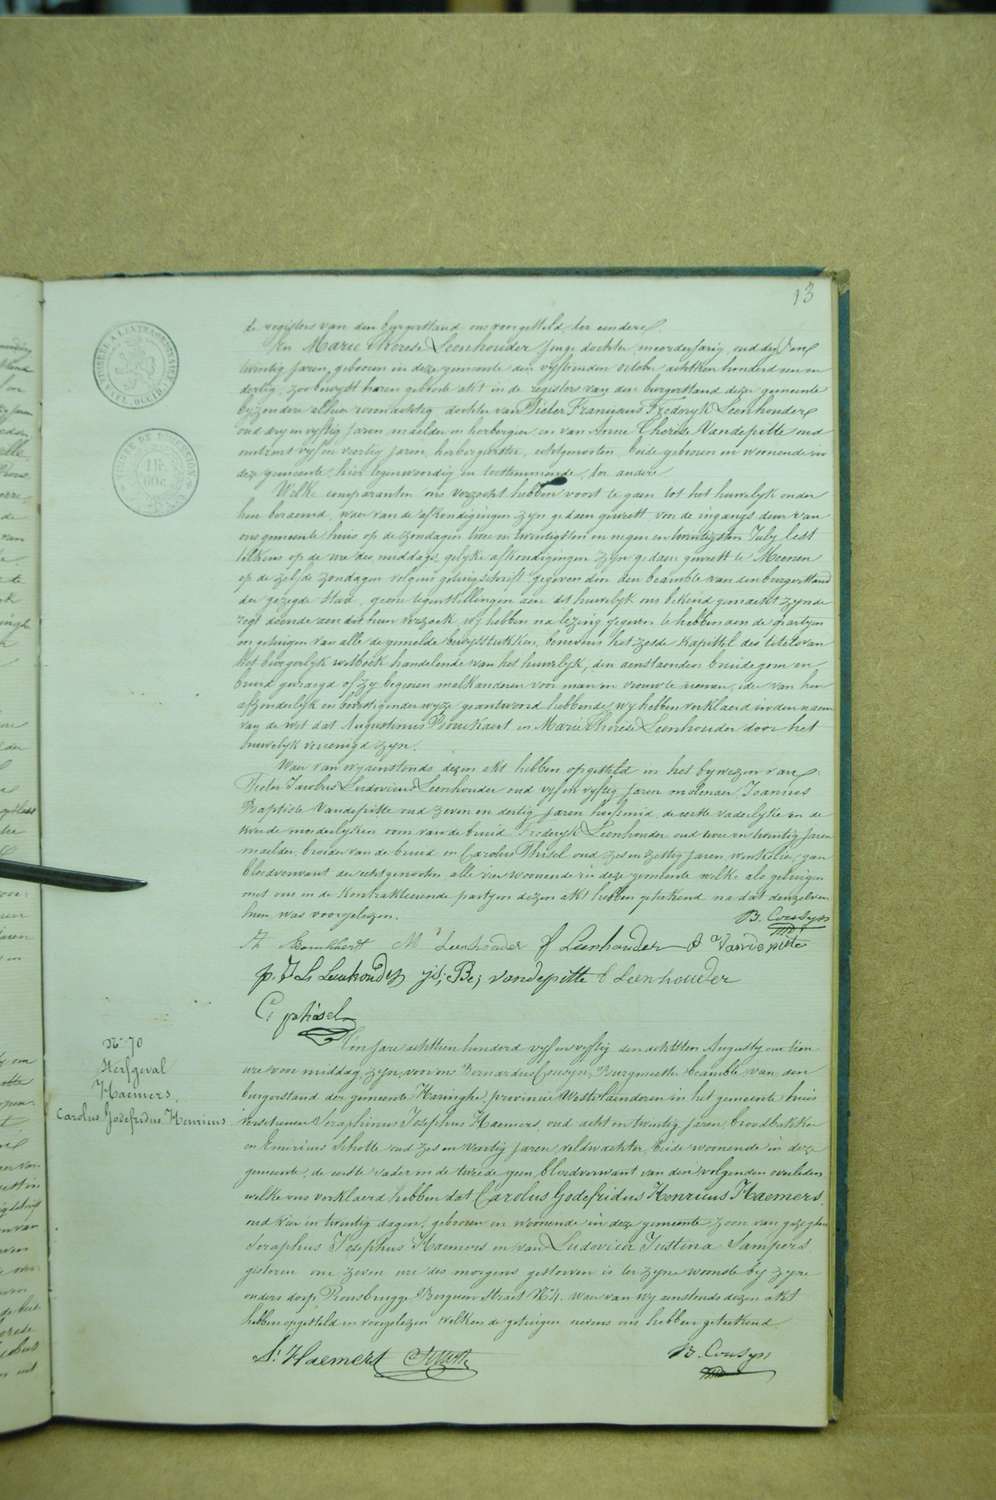 13
de registers van den burgerstand ons voorgesteld ter eendere.
En Marie Therese Leenhouder Jonge dochter, meerderjarig, oud dry en
twintig jaren, geboren in deze gemeente den vyfden october achttien honderd een en
dertig, zoo bewyst haren geboorte akt in de registers van den burgerstand dezer gemeente
byzondere alhier woonachtig dochter van Pieter Franciscus Frederyk Leenhouder
oud dry en vyftig jaren maelder en herbergier, en van Anne Therese Vandepitte oud
omtrent vyf en veertig jaren, herbergierster, echtgenooten, beide geboren en woonende in
deze gemeente, hier tegenwoordig en toestemmende, ter andere.
Welke comparanten ons verzocht hebben voort te gaen tot het huwelyk onder
hun beraemd, waer van de afkondigingen zyn gedaen geweest voor de ingangs deur van
ons gemeente huis op de zondagen twee en twintigsten en negen en twintigsten July lest
telkens op de ure des middags, gelyke afkondigingen zyn gedaen geweest te
op de zelfde zondagen volgens getuigschrift gegeven door den beambte van den burgerstand
der gezegde stad, geene tegenstellingen aen dit huwelyk ons bekend gemaekt zynde
regt doende aen hun verzoek, wy hebben na lezing gegeven te hebben aen de partyen
en getuigen van alle de gemelde bewysstukken, benevens het zesde kapittel des titels van
het burgerlyk wetboek handelende van het huwelyk, den aenstaenden bruidegom en
bruid gevraegd of zy begeeren malkanderen voor man en vrouw te nemen, ider van hun
afzonderlyk en bevestigender wyze geantwoord hebbende, wy hebben verklaerd in den naem
van de wet dat Augustinus Bonckaert en Marie Therese Leenhouder door het
huwelyk vereenigd zyn.
Waer van wy aenstonds dezen akt hebben opgesteld in het bywezen van
Pieter Jacobus Ludovicus Leenhouder oud vyf en vyftig jaren molender, Joannes
Baptiste Vandepitte oud zeven en dertig jaren hoefsmid de eerste vaderlyken en de
tweede moederlyken oom van de bruid Frederyk Leenhouder oud twee en twintig jaren
maelder, broeder van de bruid en Carolus Phisel oud zes en zestig jaren, winkelier, gan
bloedverwant der echtgenooten, alle vier woonende in deze gemeente welke als getuigen
met ons en de kontrakteerende partyen dezen akt hebben geteekend na dat denzelven
hun was voorgelezen.
B. Cousyn
Leenhouder f Leenhouder Vandepitte
p. J L Leenhouder js; Be; vandepitte f Leenhouder
C; phisel
No 70
Sterfgeval
Haemers
Carolus Godefridus Henricus
Ten jare achttien honderd vyf en vyftig den achtsten Augusty om tien
ure voor middag, zyn, voor ons Bernardus Cousyn, Burgmeester beambte van den
burgerstand der gemeente Haringhe provincie Westvlaenderen in het gemeente huis
verschenen Seraphinus Josephus Haemers, oud acht en twintig jaren, broodbakker
en Emericus Scholle oud zes en veertig jaren veldwachter, beide woonende in deze
gemeente, de eerste vader en de tweede geen bloedverwant van den volgenden overleden
welke ons verklaerd hebben dat Carolus Godefridus Henricus Haemers,
oud vier en twintig dagen, geboren en woonende in deze gemeente zoon van gezegden
Seraphus Josephus Haemers en van Ludovica Justina Sampers
gisteren om zeven ure des morgens gestorven is ter zyne woonste by zyne
ouders dorp Rousbrugge Berguen straet No 4. waer van wy aenstonds dezen akt
hebben opgesteld en voorgelezen welken de getuigen nevens ons hebben geteekend.
S: Haemers B. Cousyn